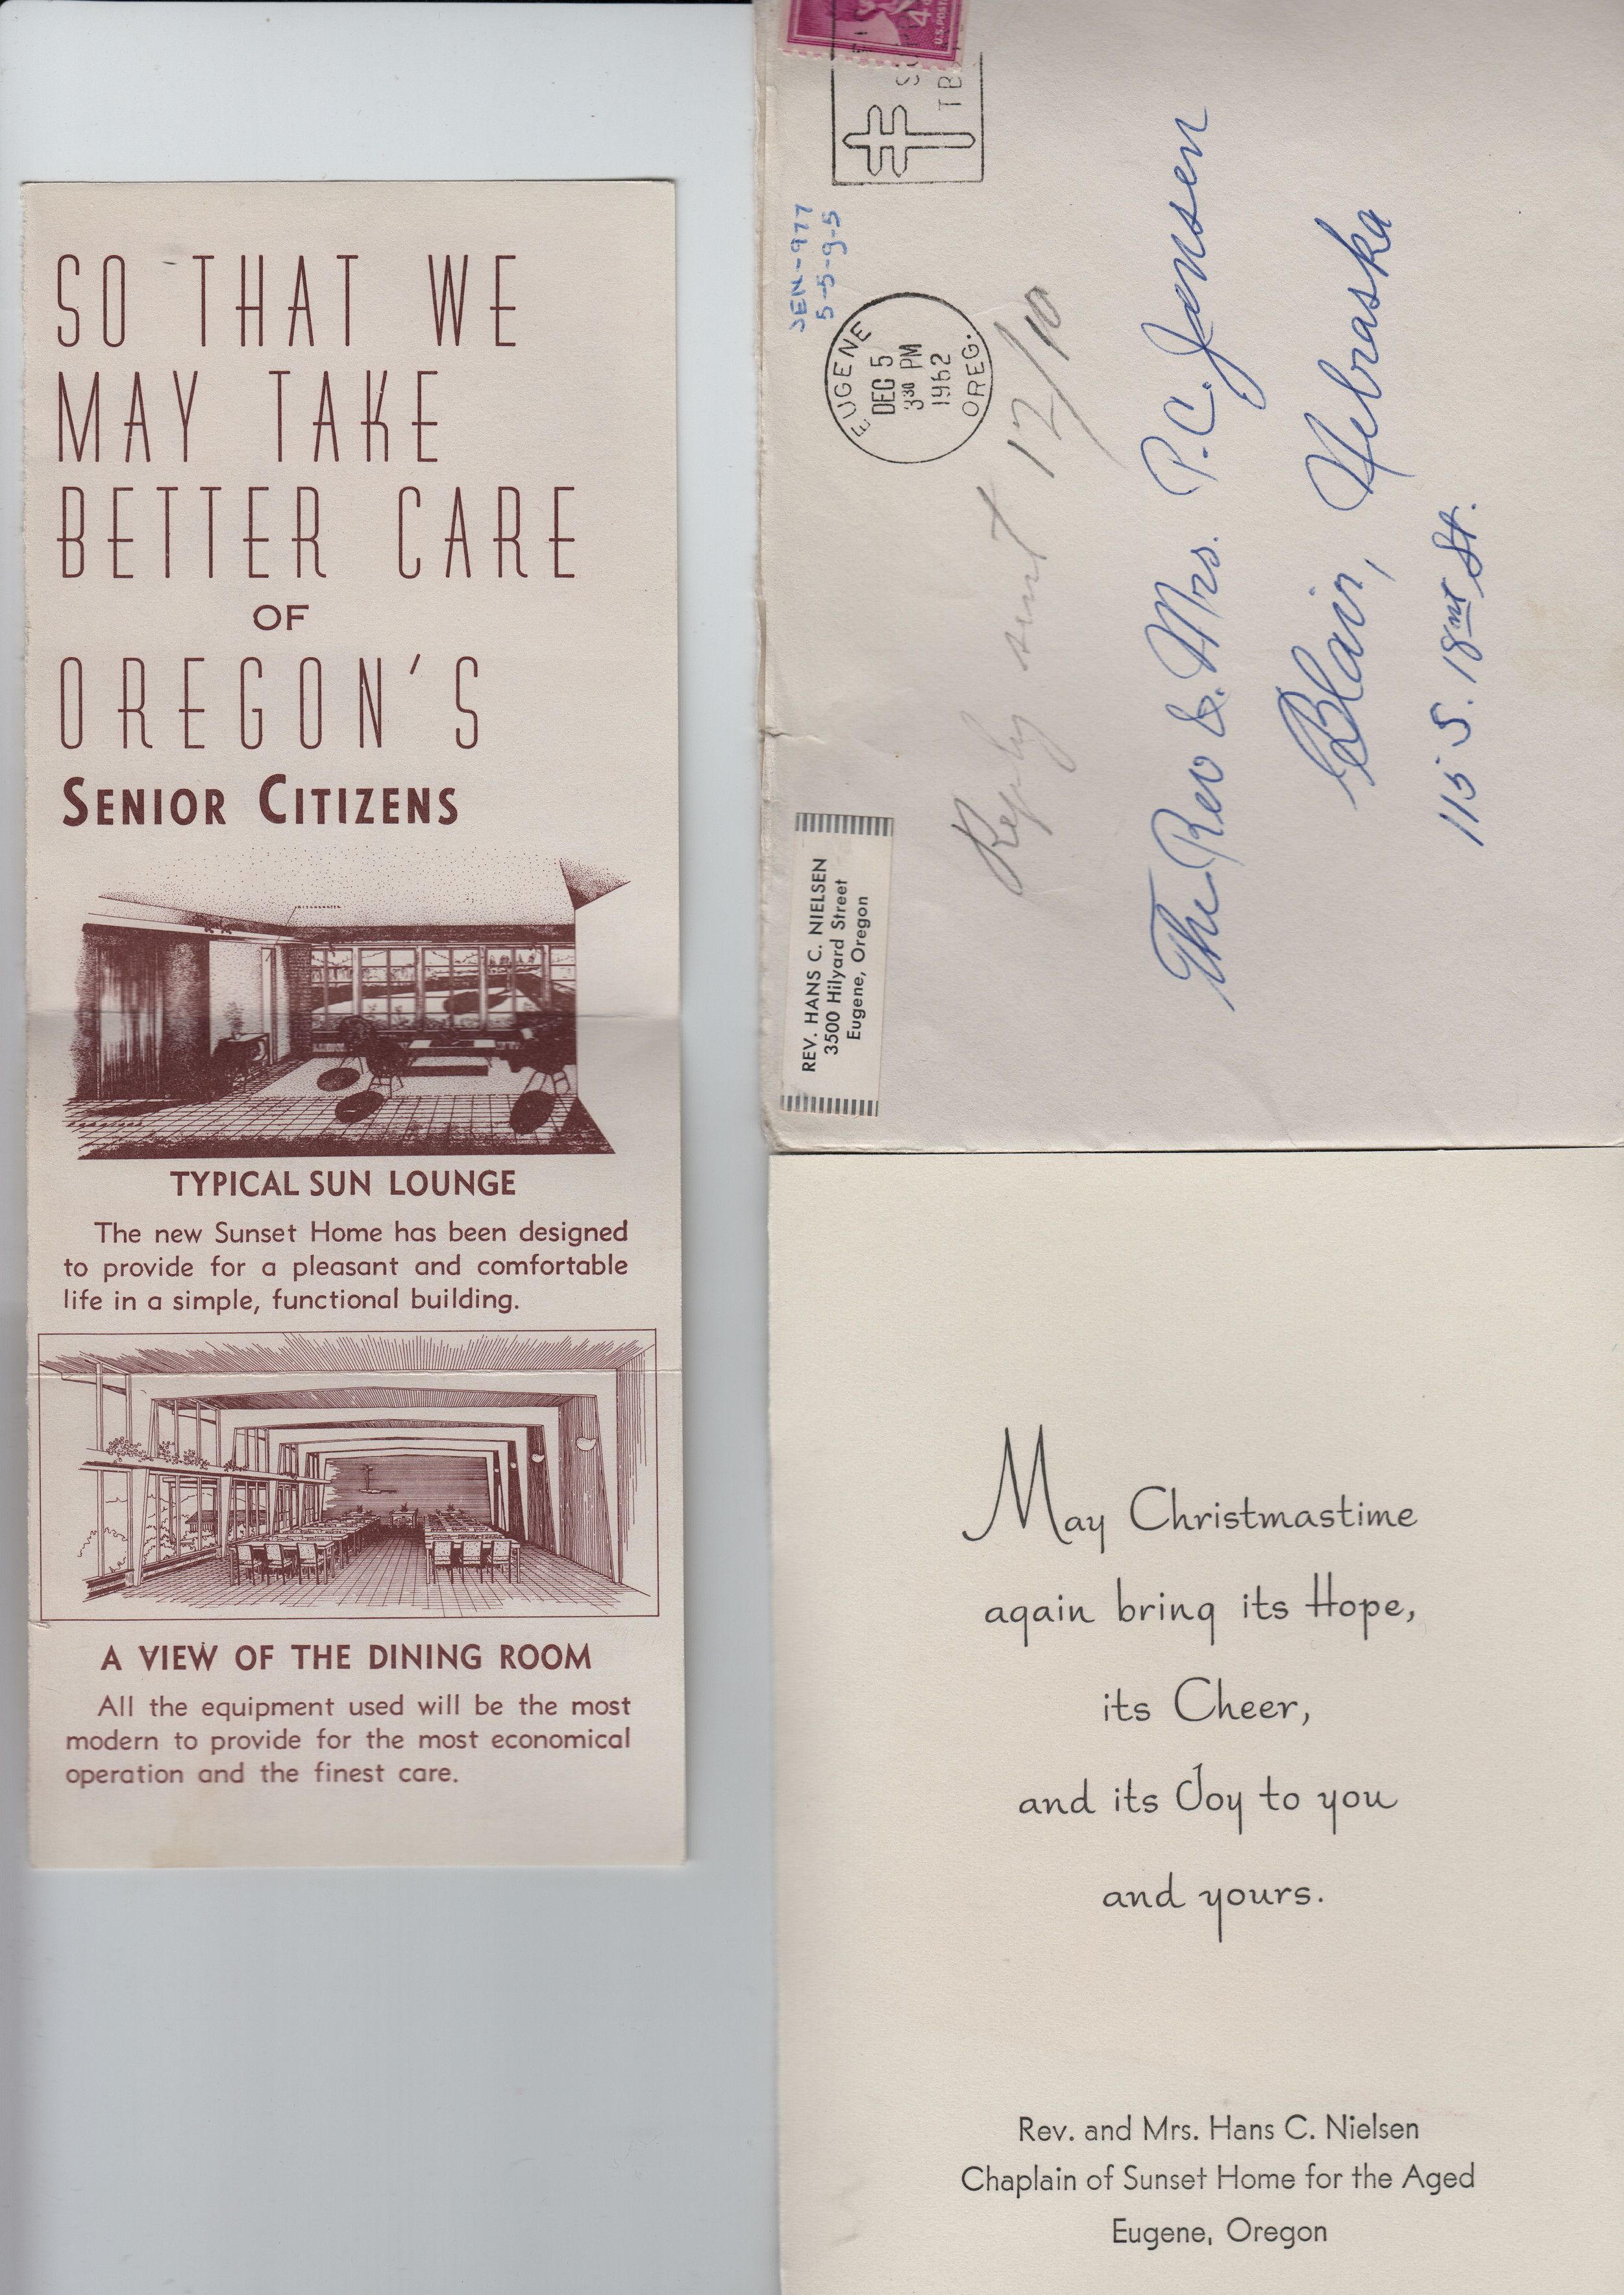 SO THAT WE
MAY TAKE
BETTER CARE
OF
OREGON'S
SENIOR CITIZENS
TYPICAL SUN LOUNGE
The new Sunset Home has been designed
to provide for a pleasant and comfortable
life in a simple, functional building.
A VIEW OF THE DINING ROOM
All the equipment used will be the most
modern to provide for the most economical
operation and the finest care.
REV. HANS C. NIELSEN
3500 Hilyard Street
Eugene, Oregon
JEN-977
5-5-9-5
EUGENE
DEC 5
3 30 PM
1962
OREG.
4¢
U.S. POST
TB
Reply sent 12/10
The Rev & Mrs. P.C. Jensen
Blair, Nebraska
115 S. 18nt St.
May Christmastime
again bring its Hope,
its Cheer,
and its Joy to you
and yours.
Rev. and Mrs. Hans C. Nielsen
Chaplain of Sunset Home for the Aged
Eugene, Oregon